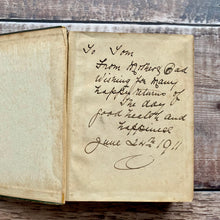 To Tom
From Mother & Dad
Wishing for many
happy returns of
The day of
good health and
happiness
June 24th 1911